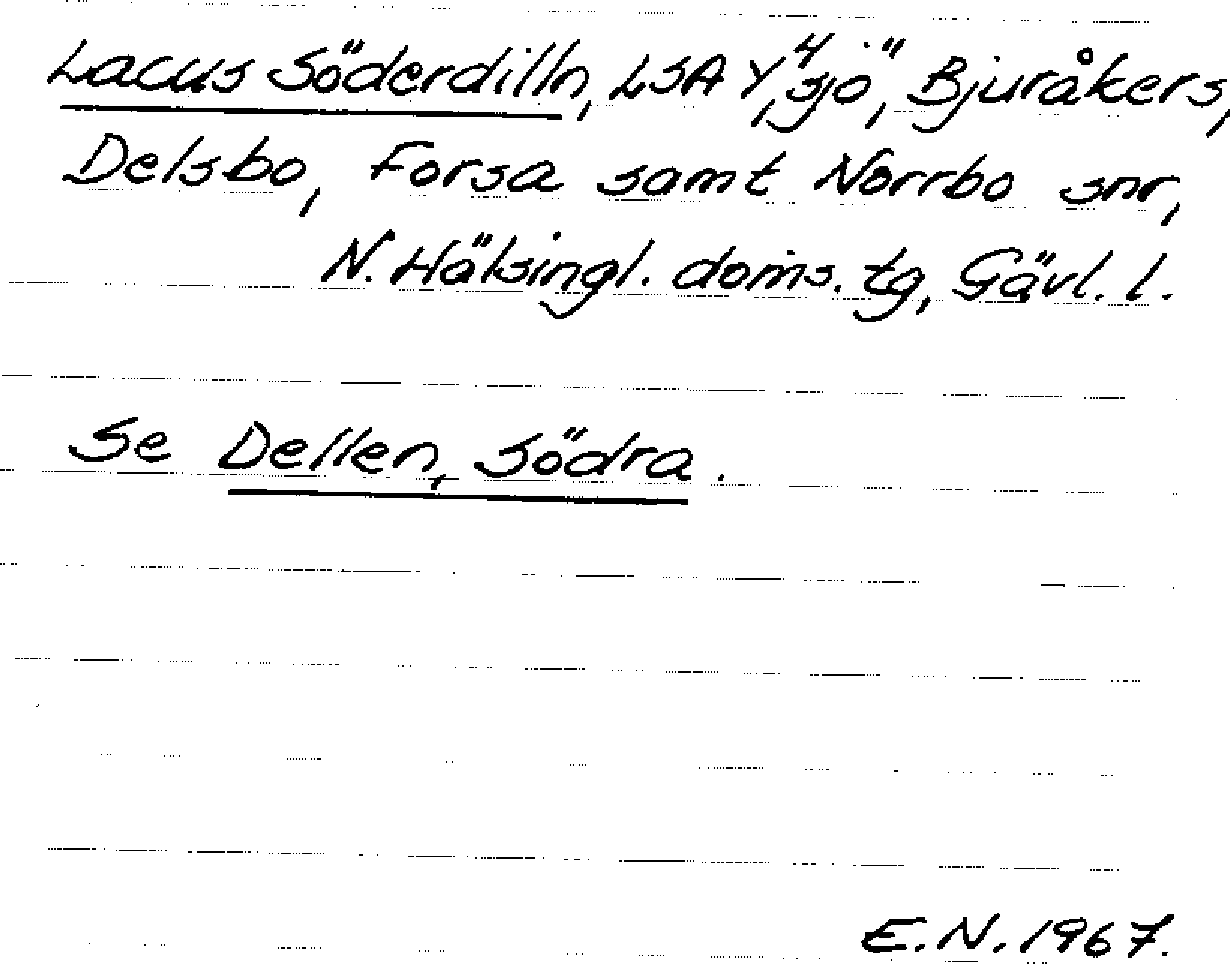 Lacus Söderdilln, LSA Y⁴, sjö, Bjuråkers,
Delsbo, Forsa samt Norrbo snr,
N. Hälsingl. doms. tg, Gävl. l.
Se Dellen, Södra.
E.N. 1967.